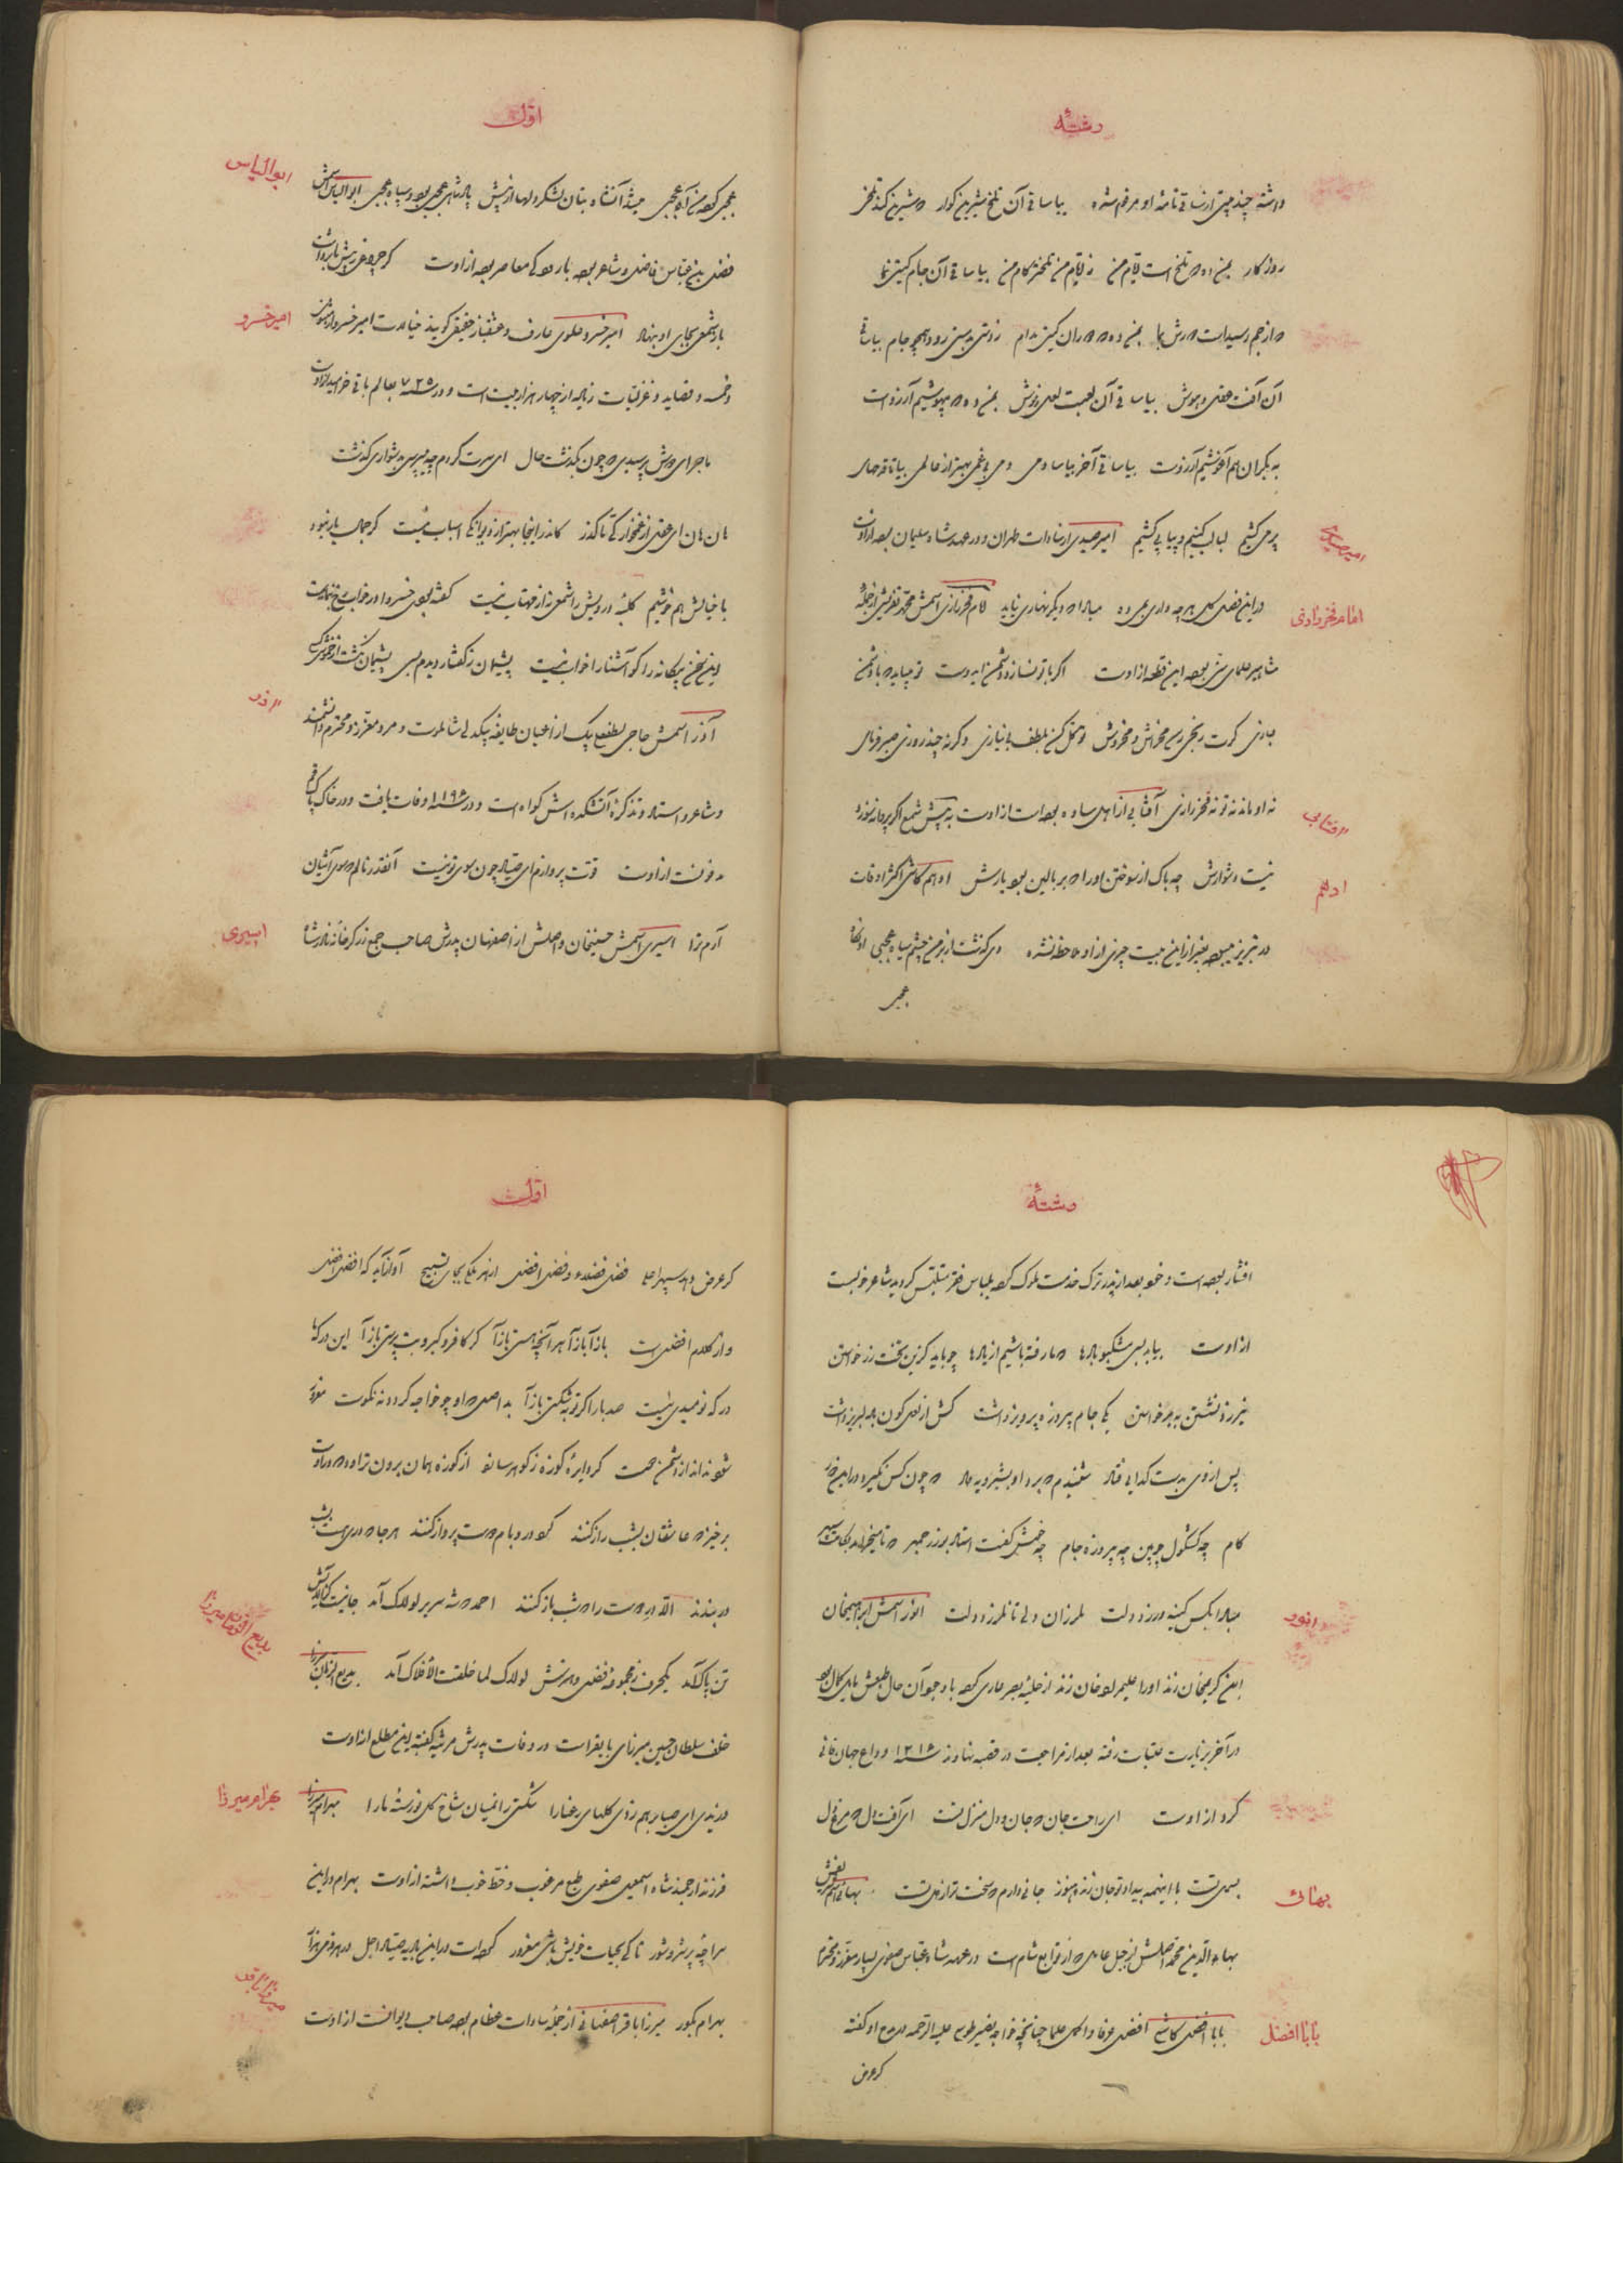 رشتهٔ
داشته چند بیتی از ساقی نامهٔ او مرقوم شده بیا ساقی آن تلخ شیرین گوار که شیرین کند تلخی
روزگار بمن ده که تلخ است ایام من ز ایام من تلختر کام من بیا ساقی آن جام گیتی نما
که از جم رسیدست دورش بما بمن ده که دوران گیتی مدام ز دستی بدستی رود همچو جام بیا ساقی
آن آفت عقل و هوش بیا ساقی آن لعبت لعل پوش بمن ده که بیهوشیم آرزوست
به بکران هم آغوشیم آرزوست بیا ساقی آخر بیاسا دمی دمی بیغمی بهتر از عالمی بیا تا قدحهای
پر می کشیم لبالب کنیم و پیاپی کشیم امیر صیدی از سادات طهران و در عهد شاه سلیمان بوده از اوست
امیر صیدی
در این فصل گل هر چه داری بمی ده مبادا که دیگر بهاری نیاید امام فخر رازی اسمش محمد از جمله
امام فخر رازی
مشاهیر علمای سنی بوده این قطعه از اوست اگر با تو نسازد دشمن ای دوست تو میباید که با دشمن
بسازی گرت رنجی رسد مخراش و مخروش توکل کن بلطف بی نیازی وگرنه چند روزی صبر فرمای
نه او ماند نه تو نه فخر رازی آفتابی از اهل ساوه بوده است از اوست به پیش شمع اگر پروانه سوزد
آفتابی
نیست دشوارش چه باک از سوختن او را که بر بالین بود یارش ادهم کاشی اکثر اوقات
ادهم
در تبریز میبوده بغیر از این بیت چیزی از او ملاحظه نشده دی گذشت از بر من چشم سیاه عجبی او نگاه
عجبی
اول
عجبی کرد من آه عجبی میشد آنشاه بتان لشکر دلها از پیش پادشاهی عجبی بود و سپاه عجبی ابوالیاس اسمش
ابوالیاس
فضل بن عباس فاضل و شاعر بوده با رودکی معاصر بوده از اوست گر چراغی ز پیش ما برداشت
باز شمعی بجای او بنهاد امیر خسرو دهلوی عارف و عشقباز حقیقی گویند خیالات امیر خسرو از مثنوی
امیر خسرو
و خمسه و قصاید و غزلیات زیاده از چهار هزار بیت است و در سنه ۷۲۵ بعالم باقی خرامید از اوست
ماجرای دوش پرسیدی که چون بگذشت حال ای سرت گردم چه میپرسی بدشواری گذشت
هان هان ای عقل از غمخوارگی ما گذر کاندر اینجا بهتر از دیوانگی اسباب نیست گر جمال یار نبود
با خیالش هم خوشیم کلبهٔ درویش را شمعی به از مهتاب نیست گفته بودی خسروا در خواب رخ بنمایمت
این سخن بیگانه را گو آشنا را خواب نیست پشیمان ز گفتار دیدم بسی پشیمان نگشت از خموشی کسی
آذر اسمش حاجی لطفعلی بیک از اعیان طایفه بیکدلی شاملوست و مرد معزز و محترم دانشمند
آذر
و شاعر و استاد و تذکرهٔ آتشکده اش گواه است و در سنه ۱۱۹۵ وفات یافت و در خاک پاک قم
مدفونست از اوست قوت پروازم ای صیاد چون سوی تو نیست آنقدر نالم که سوی آشیان
آرم ترا اسیری اسمش حسینخان و اصلش از اصفهان پدرش صاحب جمع زرگرخانه نادرشاه
اسیری
رشتهٔ
افشار بوده است و خود بعد از پدر ترک خدمت ملوک کرده بلباس فقر متلبس گردیده شاعر خوبیست
از اوست بیا بلبل مشکبو بادها که ما رفته باشیم از یادها چو باید کزین تخت زر خواستن
نیرزد نشستن بر خواستن یکی جام پیروزه پرویز داشت کش از لعل گون باده لبریز داشت
پس از وی بدست گدایی فتاد شنیدم که بر داد بشیرویه داد که چون کس نگیرد در این
کام چه کشکول چوبین چه پیروزه جام چه خوش گفت استاد بوزرجمهر که تا میخرامد بکامت سپهر
مبادا بکس کینه ورزد دلت ملرزان دلی تا نلرزد دلت انور اسمش ابراهیمخان
انور
ابن کریمخان زند او را علیمراد خان زند از حلیهٔ بصر عاری کرد با وجود آن حال طبعش مایل کمال بود
در آخر بزیارت عتبات رفته بعد از مراجعت در قصبه نهاوند سنه ۱۲۱۶ وداع جهان فانی
کرد از اوست ای راحت جان که جان و دل منزل تست ای آفت دل که مرغ دل
بسمل تست با اینهمه بیداد تو جان زنده هنوز جانی دارم که سخت تر از دل تست بهائی اسم شریفش
بهائی
بهاء الدین محمد اصلش از جبل عامل که از توابع شام است در عهد شاه عباس صفوی بسیار معزز و محترم
بابا افضل کاشی افضل عرفا و اکمل علما چنانچه خواجه نصیر طوسی علیه الرحمه در مدح او گفته
بابا افضل
گر عرض
اول
گر عرض دهد سپهر اعلا فضل فضلا و فضل افضل از هر ملکی بجای تسبیح آواز آید که افضل افضل
و از کلام افضل است بازآ بازآ هر آنچه هستی بازآ گر کافر و گبر و بت پرستی بازآ این درگه ما
درگه نومیدی نیست صد بار اگر توبه شکستی بازآ بد اصل گدا چو خواجه گردد نه نکوست مغرور
شود نداند از دشمن دوست گر دایرهٔ کوزه ز گوهر سازند از کوزه همان برون تراود که در اوست
برخیز که عاشقان بشب راز کنند گرد در و بام دوست پرواز کنند هر جا که دری بود بشب
در بندند الا در دوست را که شب باز کنند احمد که شه سریر لولاک آمد جانیست کز آلایش
تن پاک آمد یک حرف ز مجموعهٔ فضل و هنرش لولاک لما خلقت الافلاک آمد بدیع الزمان میرزا
بدیع الزمان میرزا
خلف سلطان حسین میرزای بایقراست در وفات پدرش مرثیه گفته این مطلع از اوست
وزیدی ای صبا بر هم زدی گلهای رعنا را شکستی زانمیان شاخ گل نورستهٔ ما را بهرام میرزا
بهرام میرزا
فرزند ارجمند شاه اسمعیل صفوی طبع مرغوب و خط خوب داشته از اوست بهرام در این
سراچهٔ پر شر و شور تا کی بحیات خویش باشی مغرور کرده است در این بادیه صیاد اجل در هر قدمی هزار
بهرام بگور میرزا باقر اصفهانی از جمله سادات عظام بوده صاحب دیوانست از اوست
میرزا باقر